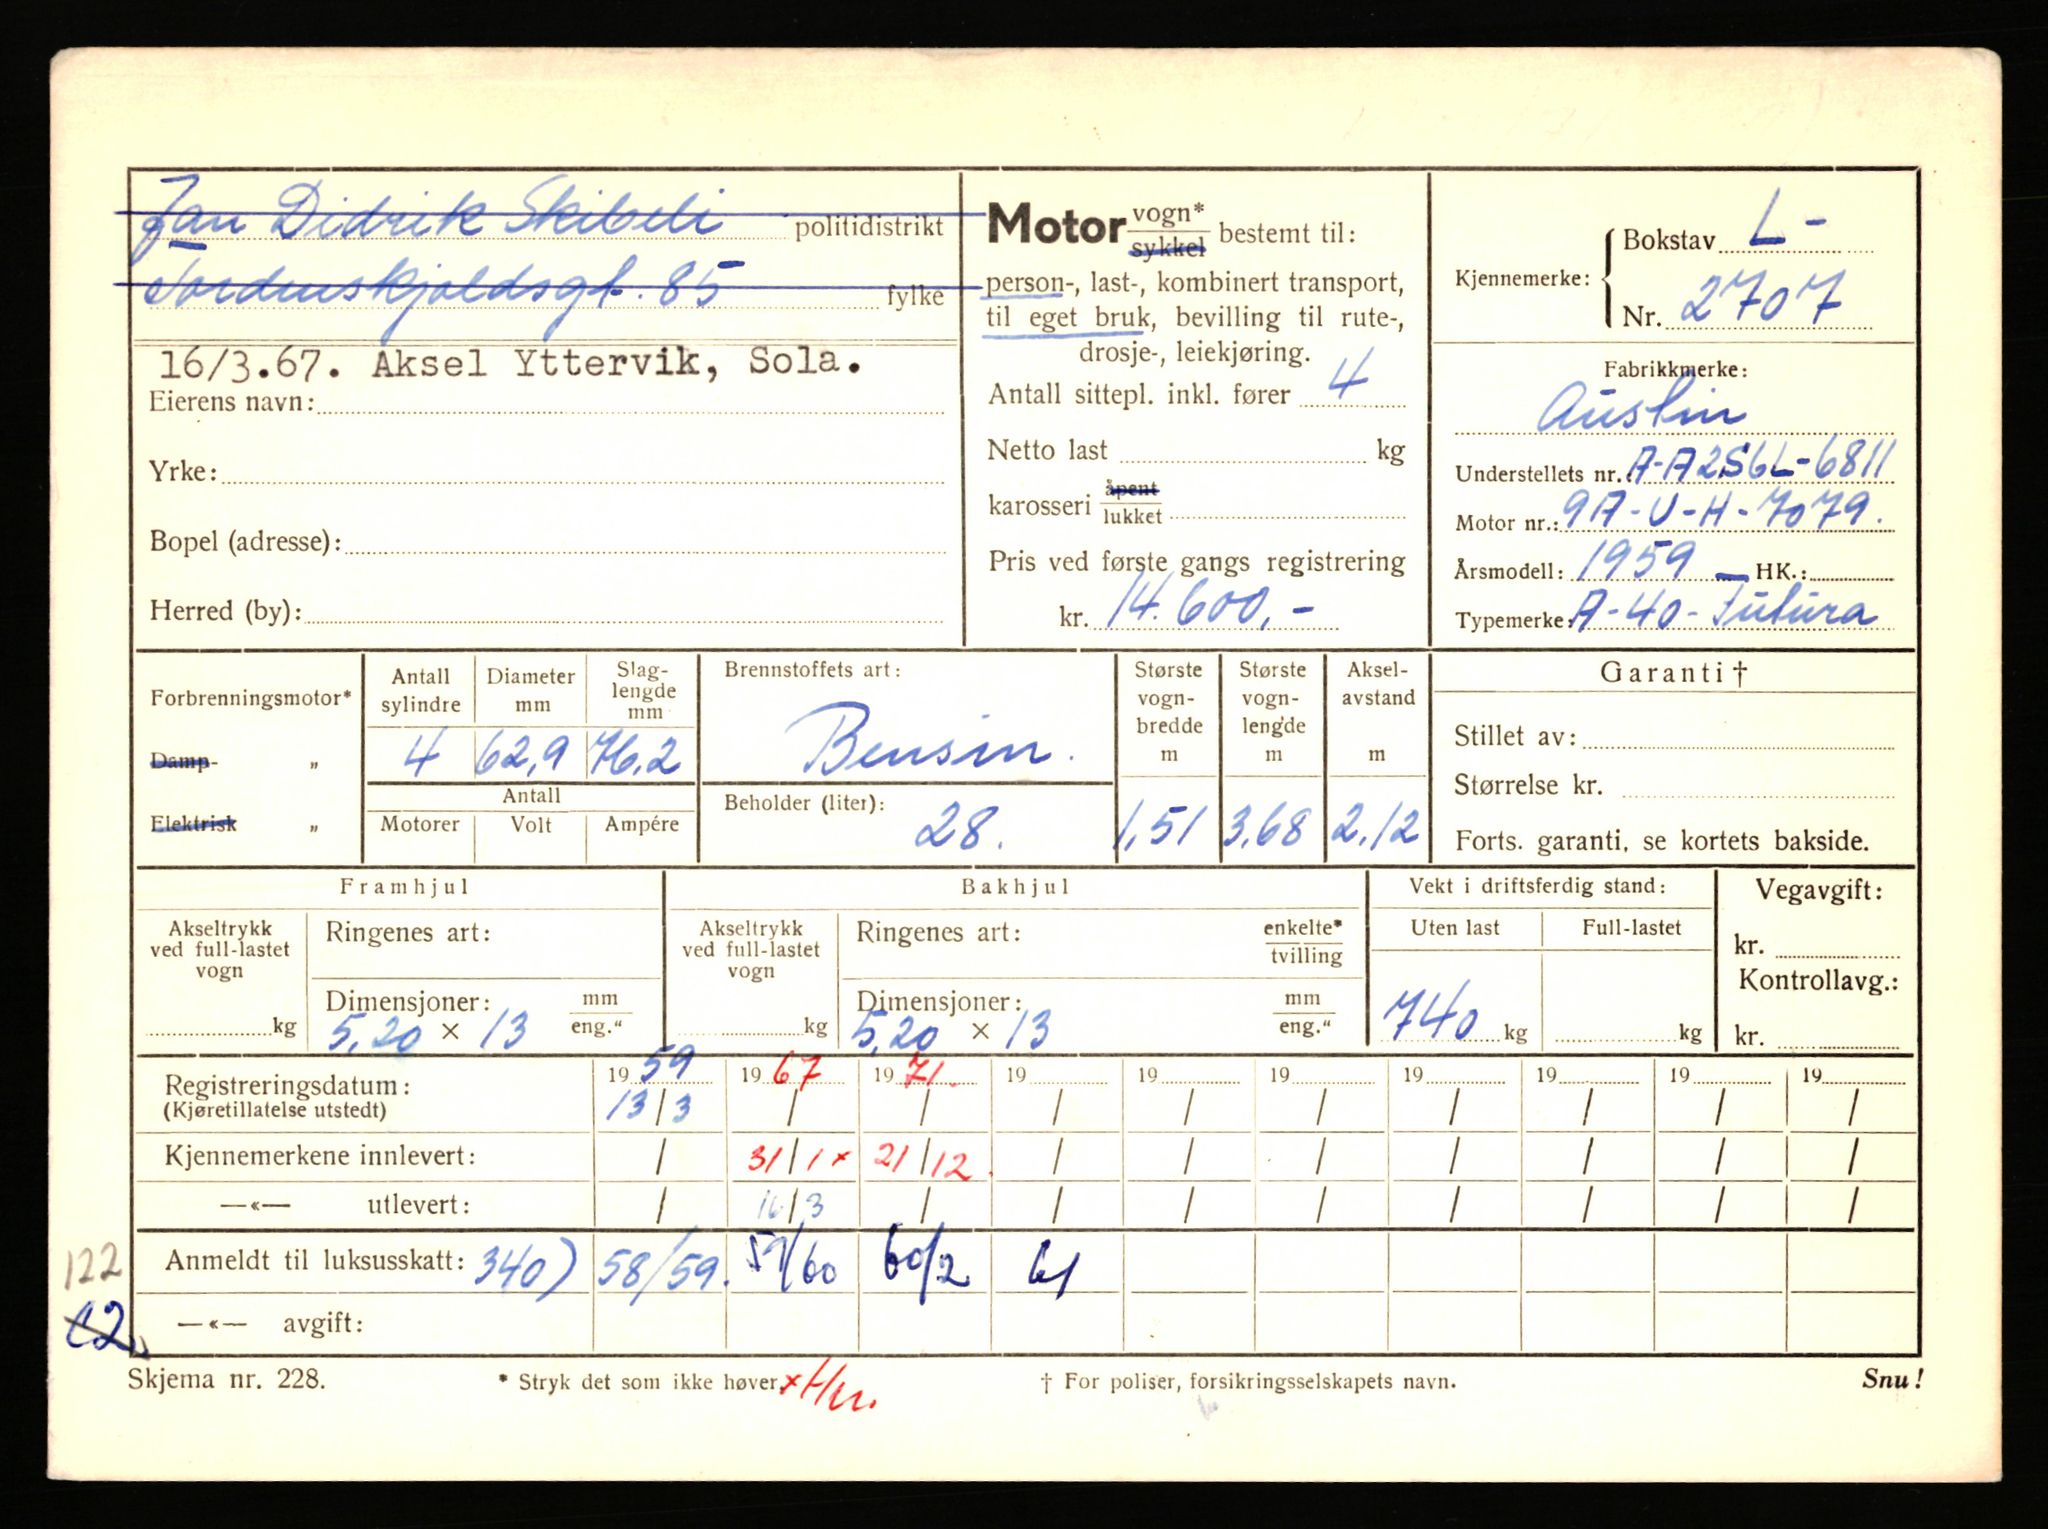 Jan Didrik Skibeli politidistrikt
Tordenskjoldsgt. 85 fylke
16/3.67. Aksel Yttervik, Sola.
Eierens navn:
Yrke:
Bopel (adresse):
Herred (by):
Motor vogn* / sykkel bestemt til:
person-, last-, kombinert transport,
til eget bruk, bevilling til rute-,
drosje-, leiekjøring.
Antall sittepl. inkl. fører 4
Netto last kg
karosseri åpent / lukket
Pris ved første gangs registrering
kr. 14.600,-
Kjennemerke: Bokstav L-
Nr. 2707
Fabrikkmerke:
Austin
Understellets nr.: A-A2S6L-6811
Motor nr.: 9A-U-H-7079.
Årsmodell: 1959 — HK.:
Typemerke: A-40-Futura
Forbrenningsmotor*
Damp- „
Elektrisk „
Antall sylindre
4
Diameter mm
62,9
Slag-lengde mm
76,2
Antall
Motorer Volt Ampére
Brennstoffets art:
Bensin.
Beholder (liter):
28.
Største vogn-bredde m
1,51
Største vogn-lengde m
3,68
Aksel-avstand m
2,12
Garanti †
Stillet av:
Størrelse kr.
Forts. garanti, se kortets bakside.
Framhjul
Akseltrykk ved full-lastet vogn
kg
Ringenes art:
Dimensjoner: mm / eng."
5,20 × 13
Bakhjul
Akseltrykk ved full-lastet vogn
kg
Ringenes art: enkelte* / tvilling
Dimensjoner: mm / eng."
5,20 × 13
Vekt i driftsferdig stand:
Uten last Full-lastet
740 kg kg
Vegavgift:
kr.
Kontrollavg.:
kr.
19 59 19 67 19 71. 19 19 19 19 19 19 19
Registreringsdatum:
(Kjøretillatelse utstedt) 13/3 / / / / / / / / /
Kjennemerkene innlevert: / 31/1 x 21/12. / / / / / / /
—«— utlevert: / 16/3 / / / / / / / /
122
Anmeldt til luksusskatt: 340) 58/59. 59/60 60/2 61
12
—«— avgift:
Skjema nr. 228. * Stryk det som ikke høver. † For poliser, forsikringsselskapets navn. Snu!